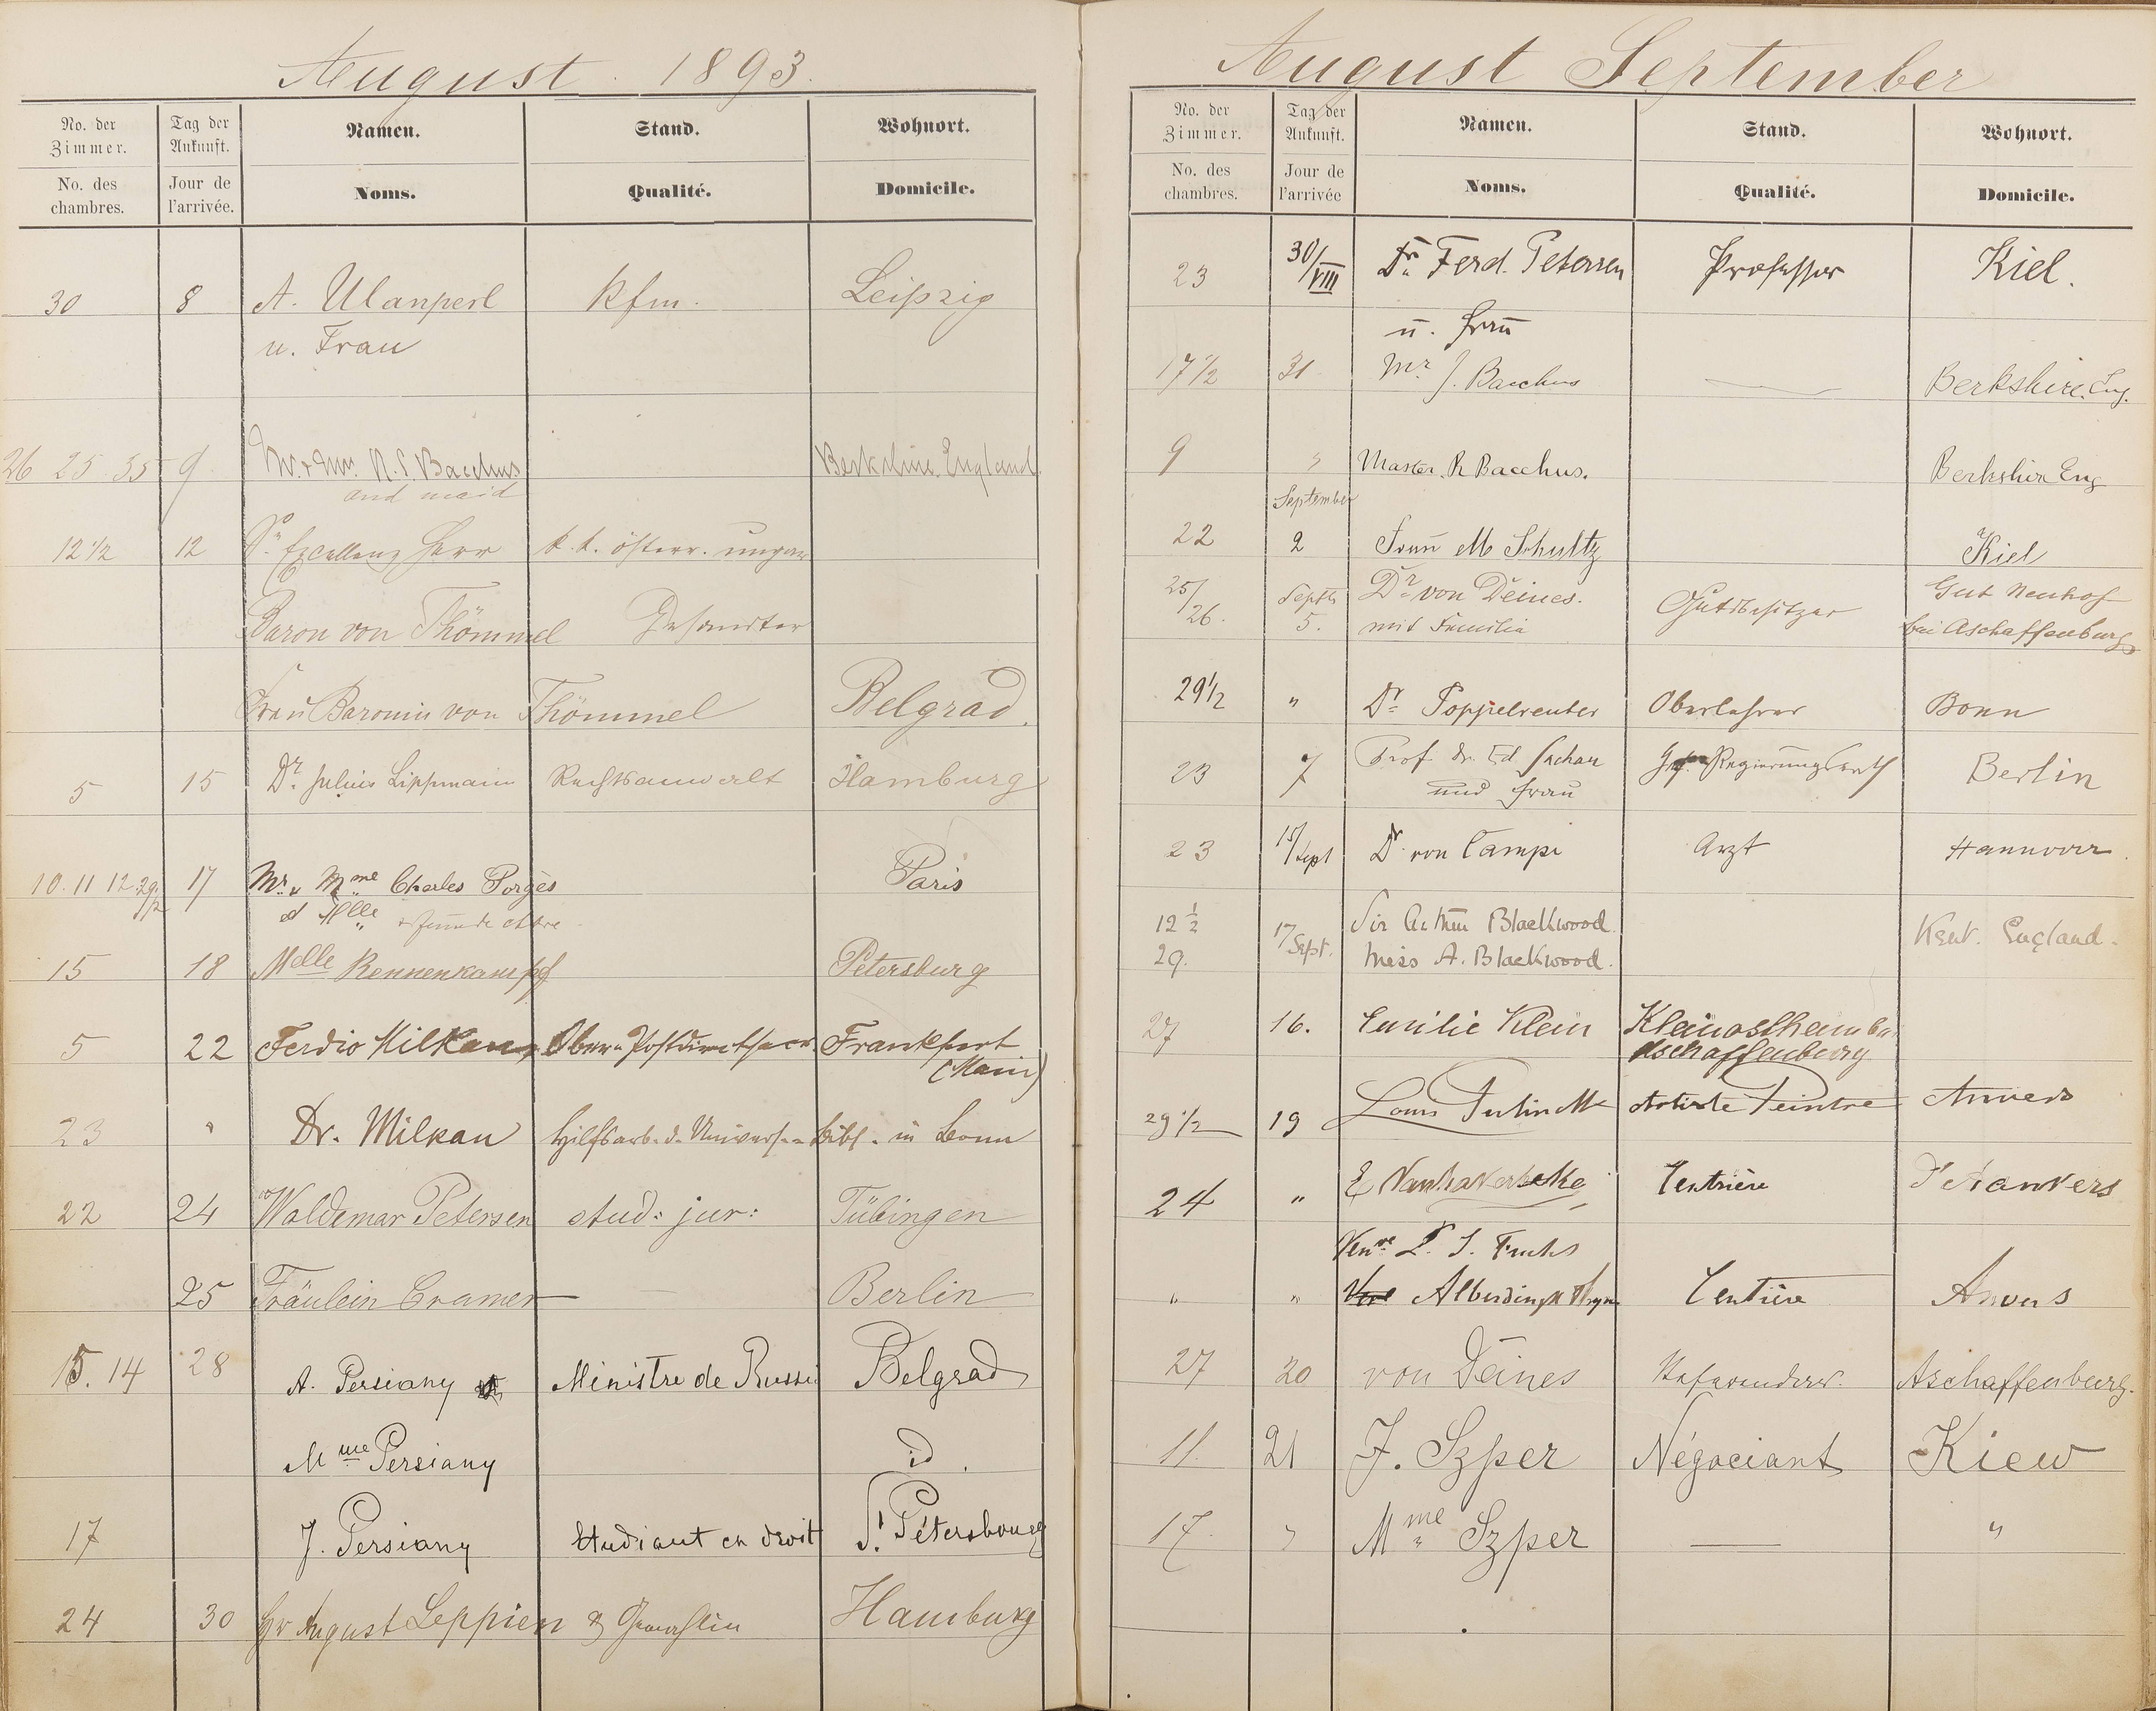 August 1893.
No. der Zimmer. Tag der Ankunft. Namen. Stand. Wohnort.
No. des chambres. Jour de l'arrivée. Noms. Qualité. Domicile.
30 8 A. Ulanperl Kfm. Leipzig
u. Frau
26 25 35 9. R. S. Bacchus Berkshire. England.
and maid
12 1/2 12 Sr. Excellenz Herr k. k. österr. ungar
Baron von Thömmel Gesandter
Frau Baronin von Thömmel Belgrad.
5 15 Dr. Julius Lippmann Rechtsanwalt Hamburg
10. 11 12. 29 1/2 17 Mr. & Mme Charles Porgès Paris
et Mlle
15 18 Melle Rennenkampf Petersburg
5 22 Ferdio Milkau, Frankfurt
(Main)
23 " Dr. Milkau Hilfsarb. d. Univers.- Bibl. in Bonn
22 24 Waldemar Petersen stud: jur: Tübingen
25 Fräulein Cramer — Berlin
15. 14 28 A. Persiany Ministre de Russie Belgrad
Mme Persiany id.
17 J. Persiany Etudiant en droit St. Pétersbourg
24 30 Hr August Leppien & Gemahlin Hamburg
August September
No. der Zimmer. Tag der Ankunft. Namen. Stand. Wohnort.
No. des chambres. Jour de l'arrivée Noms. Qualité. Domicile.
23 30/VIII Dr. Ferd. Petersen Professor Kiel.
u. Frau
17 1/2 31 Mr. J. Bacchus — Berkshire. Eng.
9 " Master. R Bacchus. Berkshire Eng
September
22 2 Frau M Schultz Kiel
25/26. Septb 5. Dr. von Deines. Gutsbesitzer Gut Neuhof
mit Familie bei Aschaffenburg
29 1/2 " Dr. Poppelreuter Oberlehrer Bonn
23 7 Prof. Dr. Ed Sachau Regierungsrath Berlin
und Frau
23 15/Sept Dr. von Campe Arzt Hannover
12 1/2 17 Sept. Sir Arthur Blackwood. Kent. England.
29. Miss A. Blackwood.
27 16. Emilie Klein Kleinostheim b.
Aschaffenburg
29 1/2 19 Louis Artiste Peintre Anvers
24 " E Rentière d'Anvers
Veuve L. J. Fuchs
" " Alberdingk Thym Rentière Anvers
27 20 von Deines Referendar. Aschaffenburg.
11. 21 J. Szper Négociant Kiew
17. " Mme Szper — "